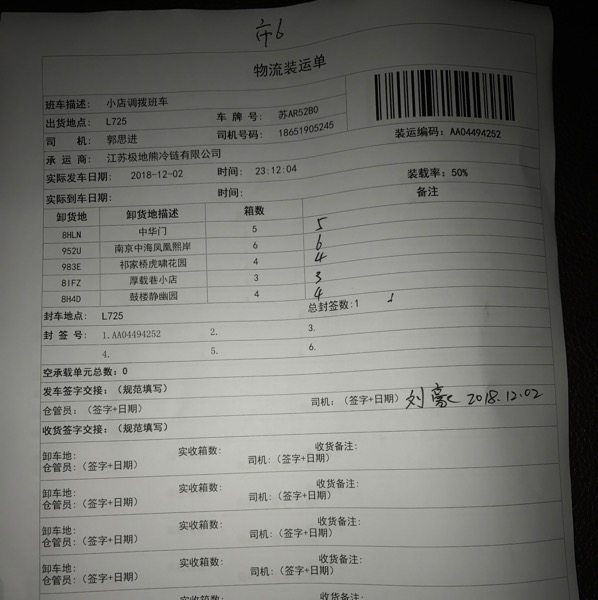 市6
物流装运单
班车描述: 小店调拨班车
出货地点: L725 车 牌 号: 苏AR52B0
司 机: 郭思进 司机号码: 18651905245 装运编码: AA04494252
承 运 商: 江苏极地熊冷链有限公司
实际发车日期: 2018-12-02 时间: 23:12:04 装载率: 50%
实际到车日期: 时间: 备注
卸货地 卸货地描述 箱数
8HLN 中华门 5 5
952U 南京中海凤凰熙岸 6 6
983E 祁家桥虎啸花园 4 4
81FZ 厚载巷小店 3 3
8H4D 鼓楼静幽园 4 4
封车地点: L725 总封签数:1
封 签 号: 1.AA04494252 2. 3.
4. 5. 6.
空承载单元总数: 0
发车签字交接: (规范填写)
仓管员: (签字+日期) 司机: (签字+日期) 刘豪 2018.12.02
收货签字交接: (规范填写)
卸车地: 实收箱数: 收货备注:
仓管员: (签字+日期) 司机: (签字+日期)
卸车地: 实收箱数: 收货备注:
仓管员: (签字+日期) 司机: (签字+日期)
卸车地: 实收箱数: 收货备注:
仓管员: (签字+日期) 司机: (签字+日期)
卸车地: 实收箱数: 收货备注:
仓管员: (签字+日期) 司机: (签字+日期)
实收箱数: 收货备注: